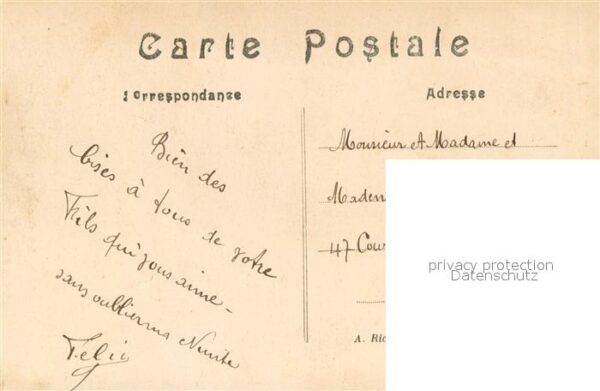 Carte Postale
Correspondanze
Adresse
Bien des
bises à tous de votre
Fils qui vous aime -
sans oublier ma
Monsieur et Madame et
47 Cour
privacy protection
Datenschutz
A. Ric